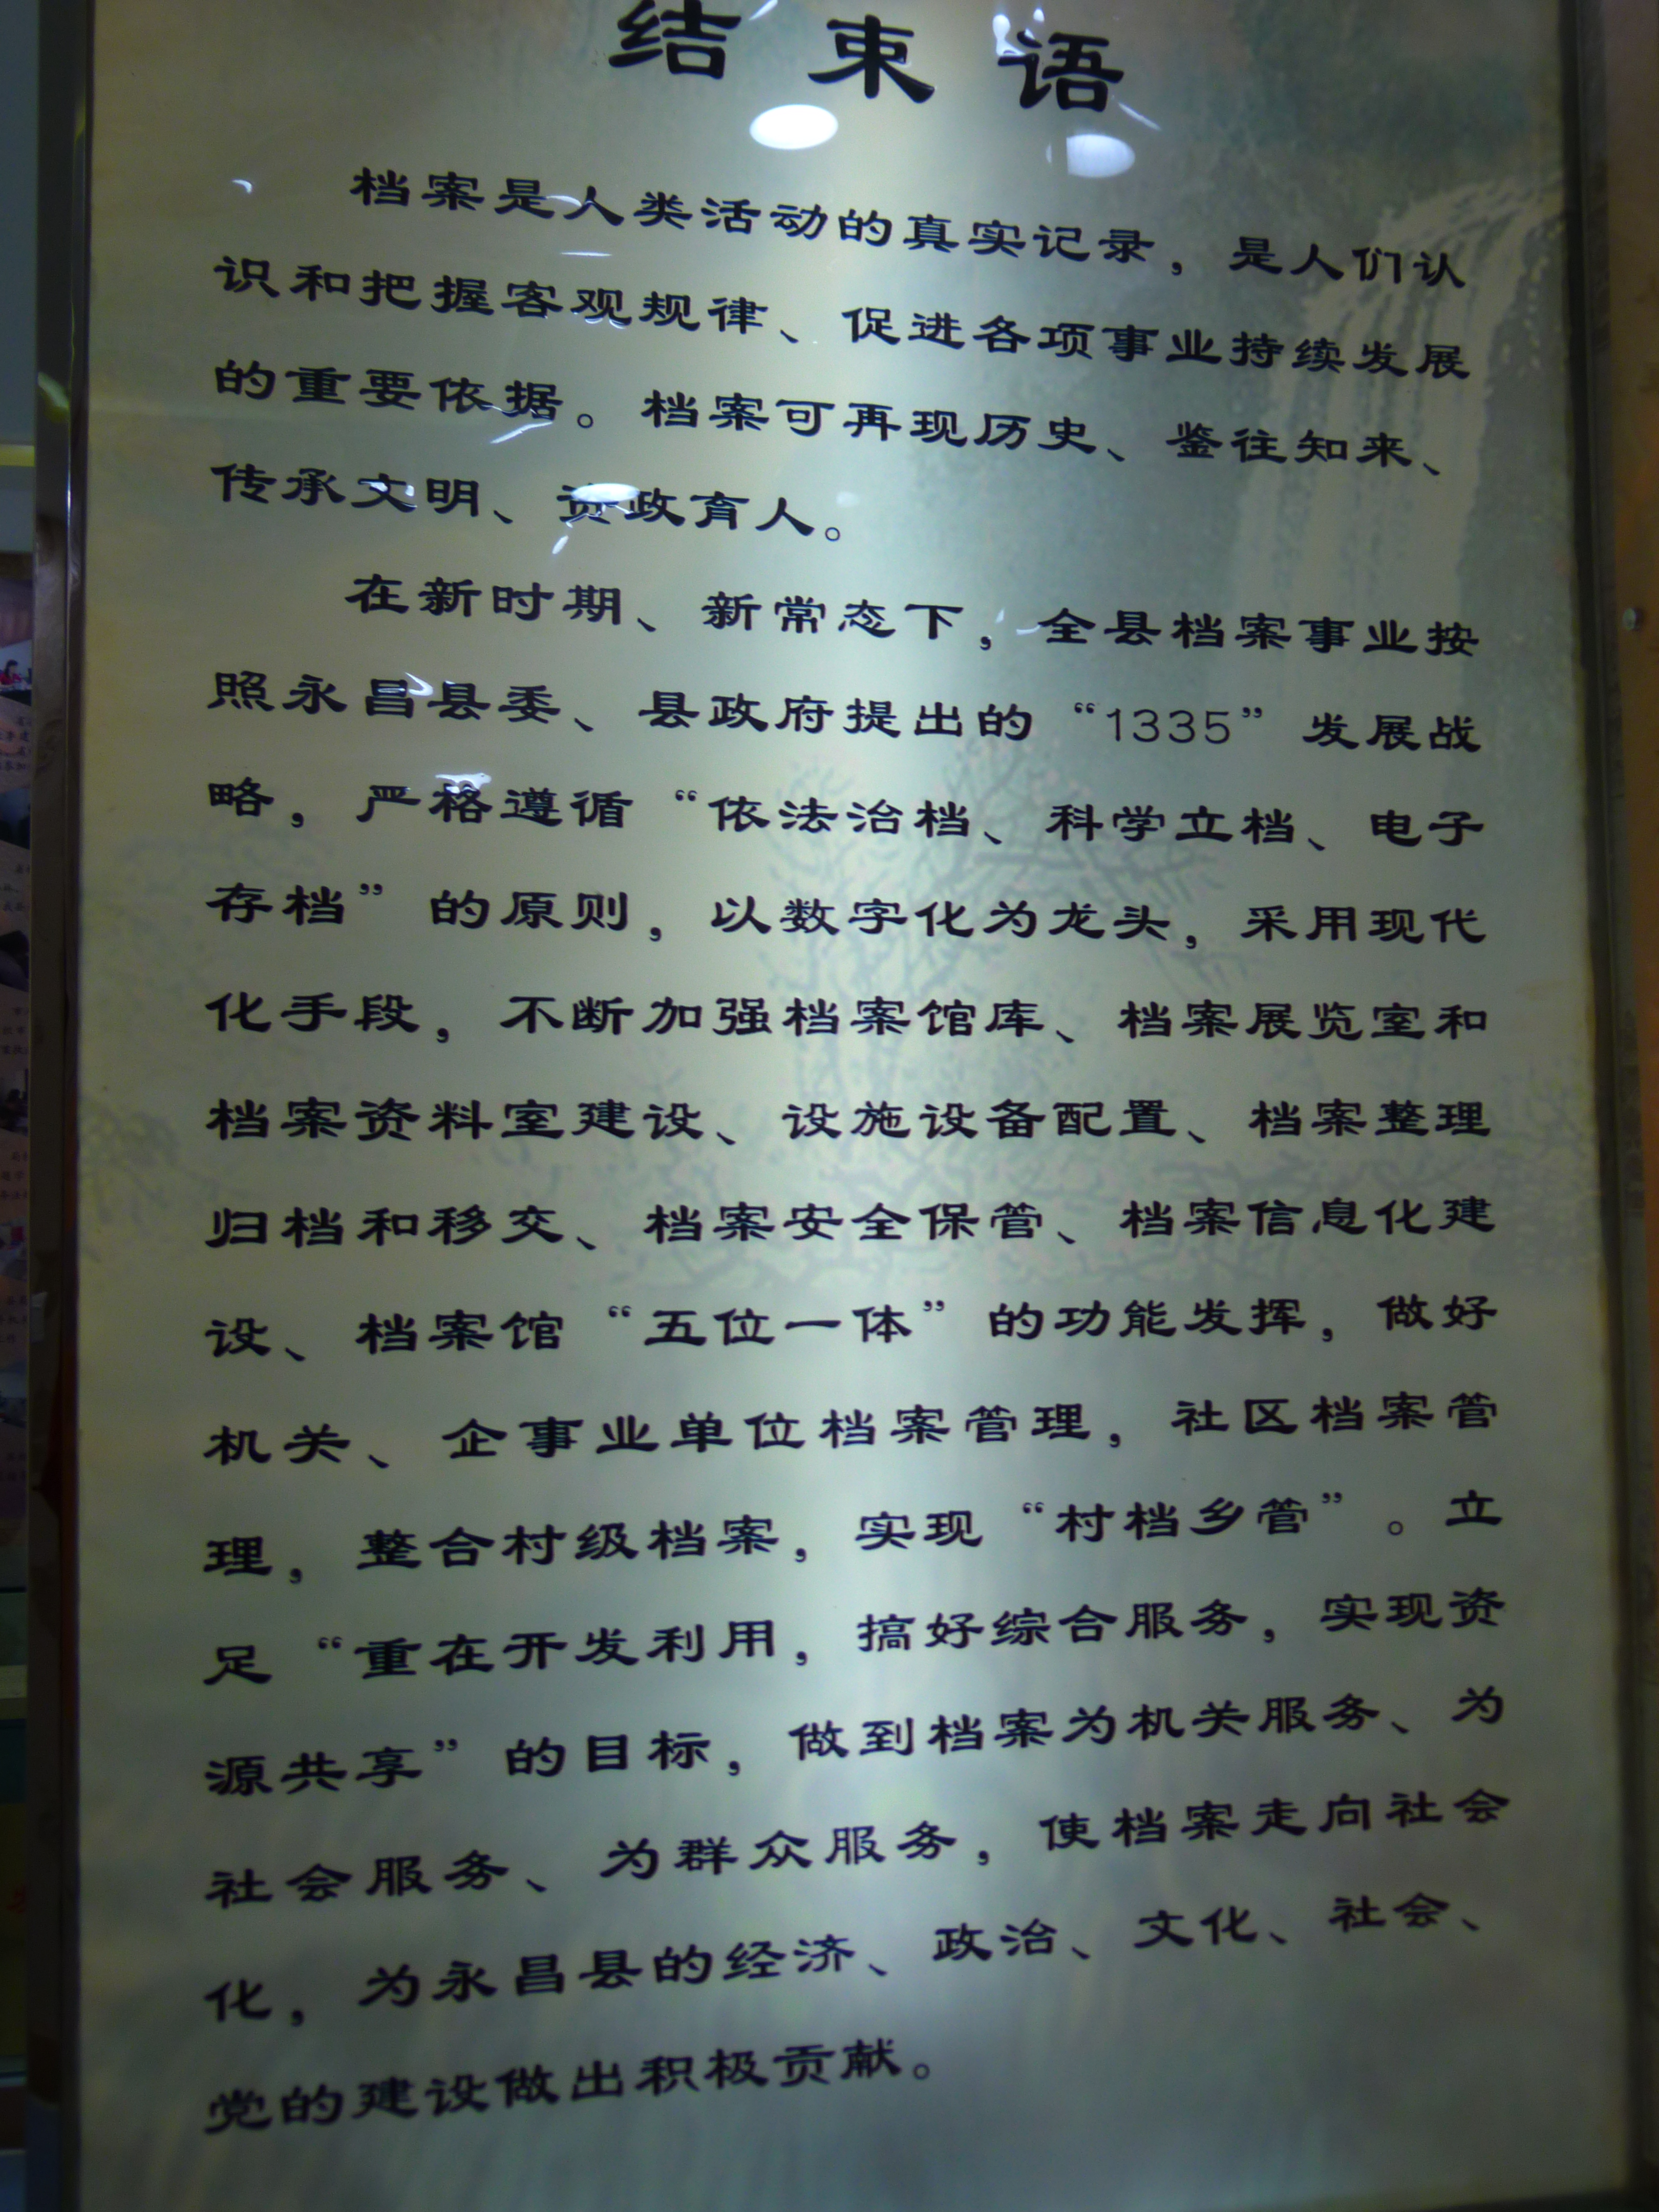 结束语
档案是人类活动的真实记录，是人们认
识和把握客观规律、促进各项事业持续发展
的重要依据。档案可再现历史、鉴往知来、
传承文明、资政育人。
在新时期、新常态下，全县档案事业按
照永昌县委、县政府提出的“1335”发展战
略，严格遵循“依法治档、科学立档、电子
存档”的原则，以数字化为龙头，采用现代
化手段，不断加强档案馆库、档案展览室和
档案资料室建设、设施设备配置、档案整理
归档和移交、档案安全保管、档案信息化建
设、档案馆“五位一体”的功能发挥，做好
机关、企事业单位档案管理，社区档案管
理，整合村级档案，实现“村档乡管”。立
足“重在开发利用，搞好综合服务，实现资
源共享”的目标，做到档案为机关服务、为
社会服务、为群众服务，使档案走向社会
化，为永昌县的经济、政治、文化、社会、
党的建设做出积极贡献。